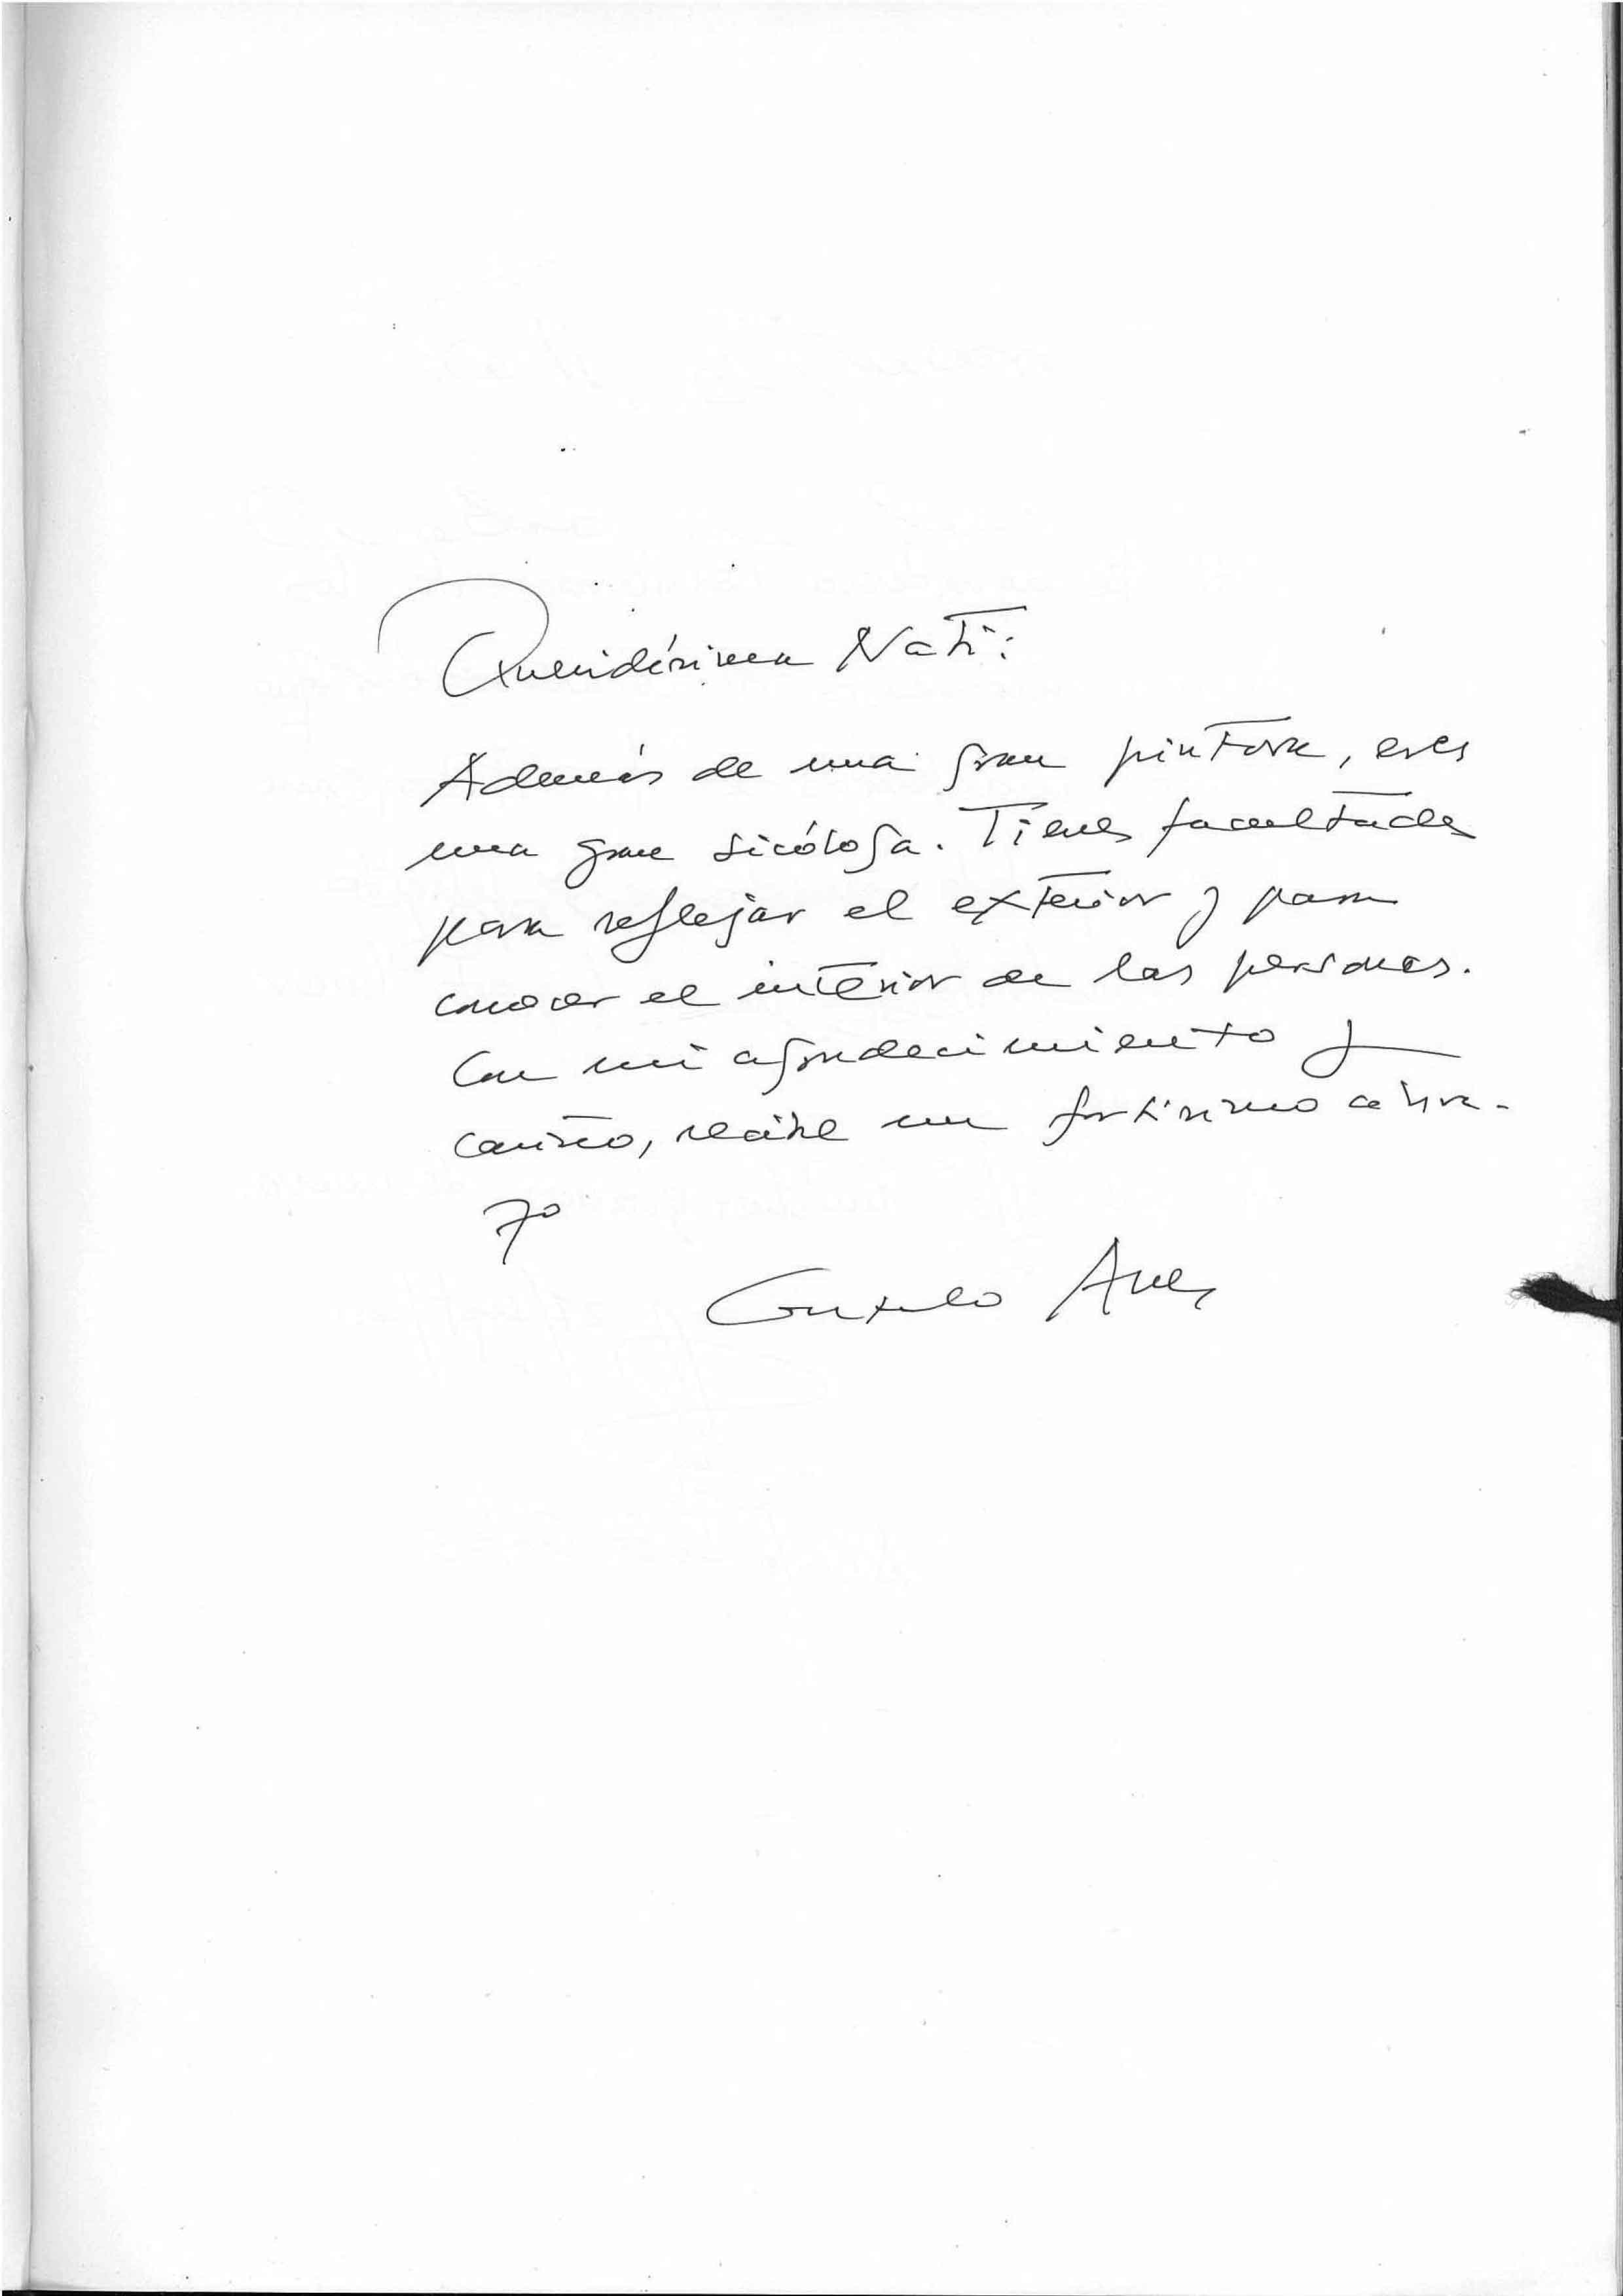 Queridísima Nati:
Además de una gran pintora, eres
una gran sicóloga. Tienes facultades
para reflejar el exterior y para
conocer el interior de las personas.
Con mi agradecimiento y
cariño, recibe un fortísimo abra-
zo
Gonzalo